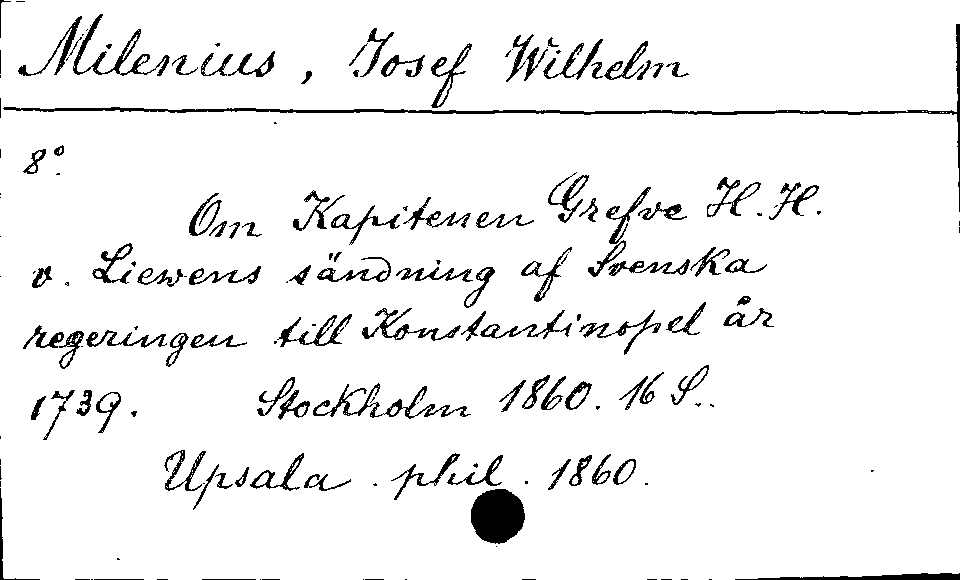 Milenius, Josef Wilhelm
8°.
Om Kapitenen Grefve H. H.
v. Liewens sändning af Svenska
regeringen till Konstantinopel år
1739. Stockholm 1860. 16 S..
Upsala. phil. 1860.